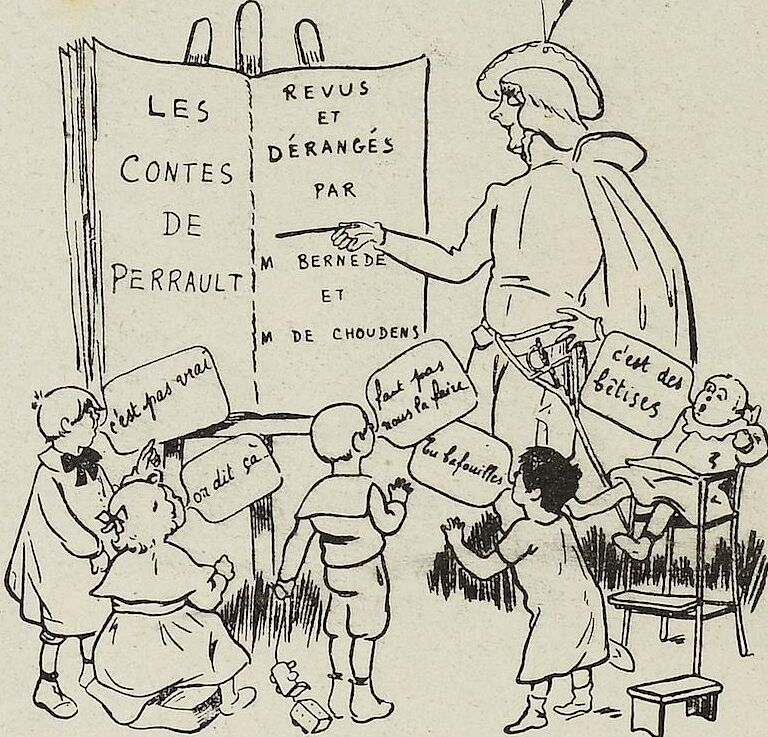 LES
CONTES
DE
PERRAULT
REVUS
ET
DÉRANGÉS
PAR
M BERNEDE
ET
M DE CHOUDENS
c'est pas vrai
on dit ça
faut pas
nous la faire
Tu bafouilles
c'est des
bêtises